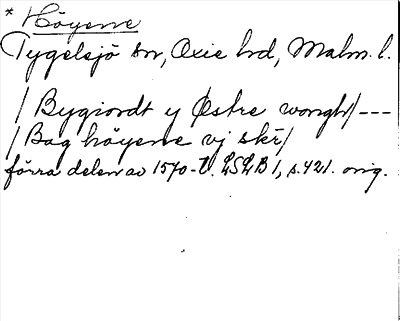 * Höyerne
Tygelsjö sn, Oxie hd, Malm. l.
/ Bygiordt y Østre wongh/ ---
/ Bag höyerne vj skr/
förra delen av 1570-t. LSLB 1, s. 421. orig.